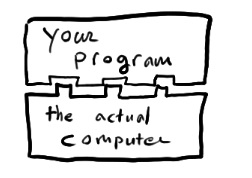 your
program
the actual
computer